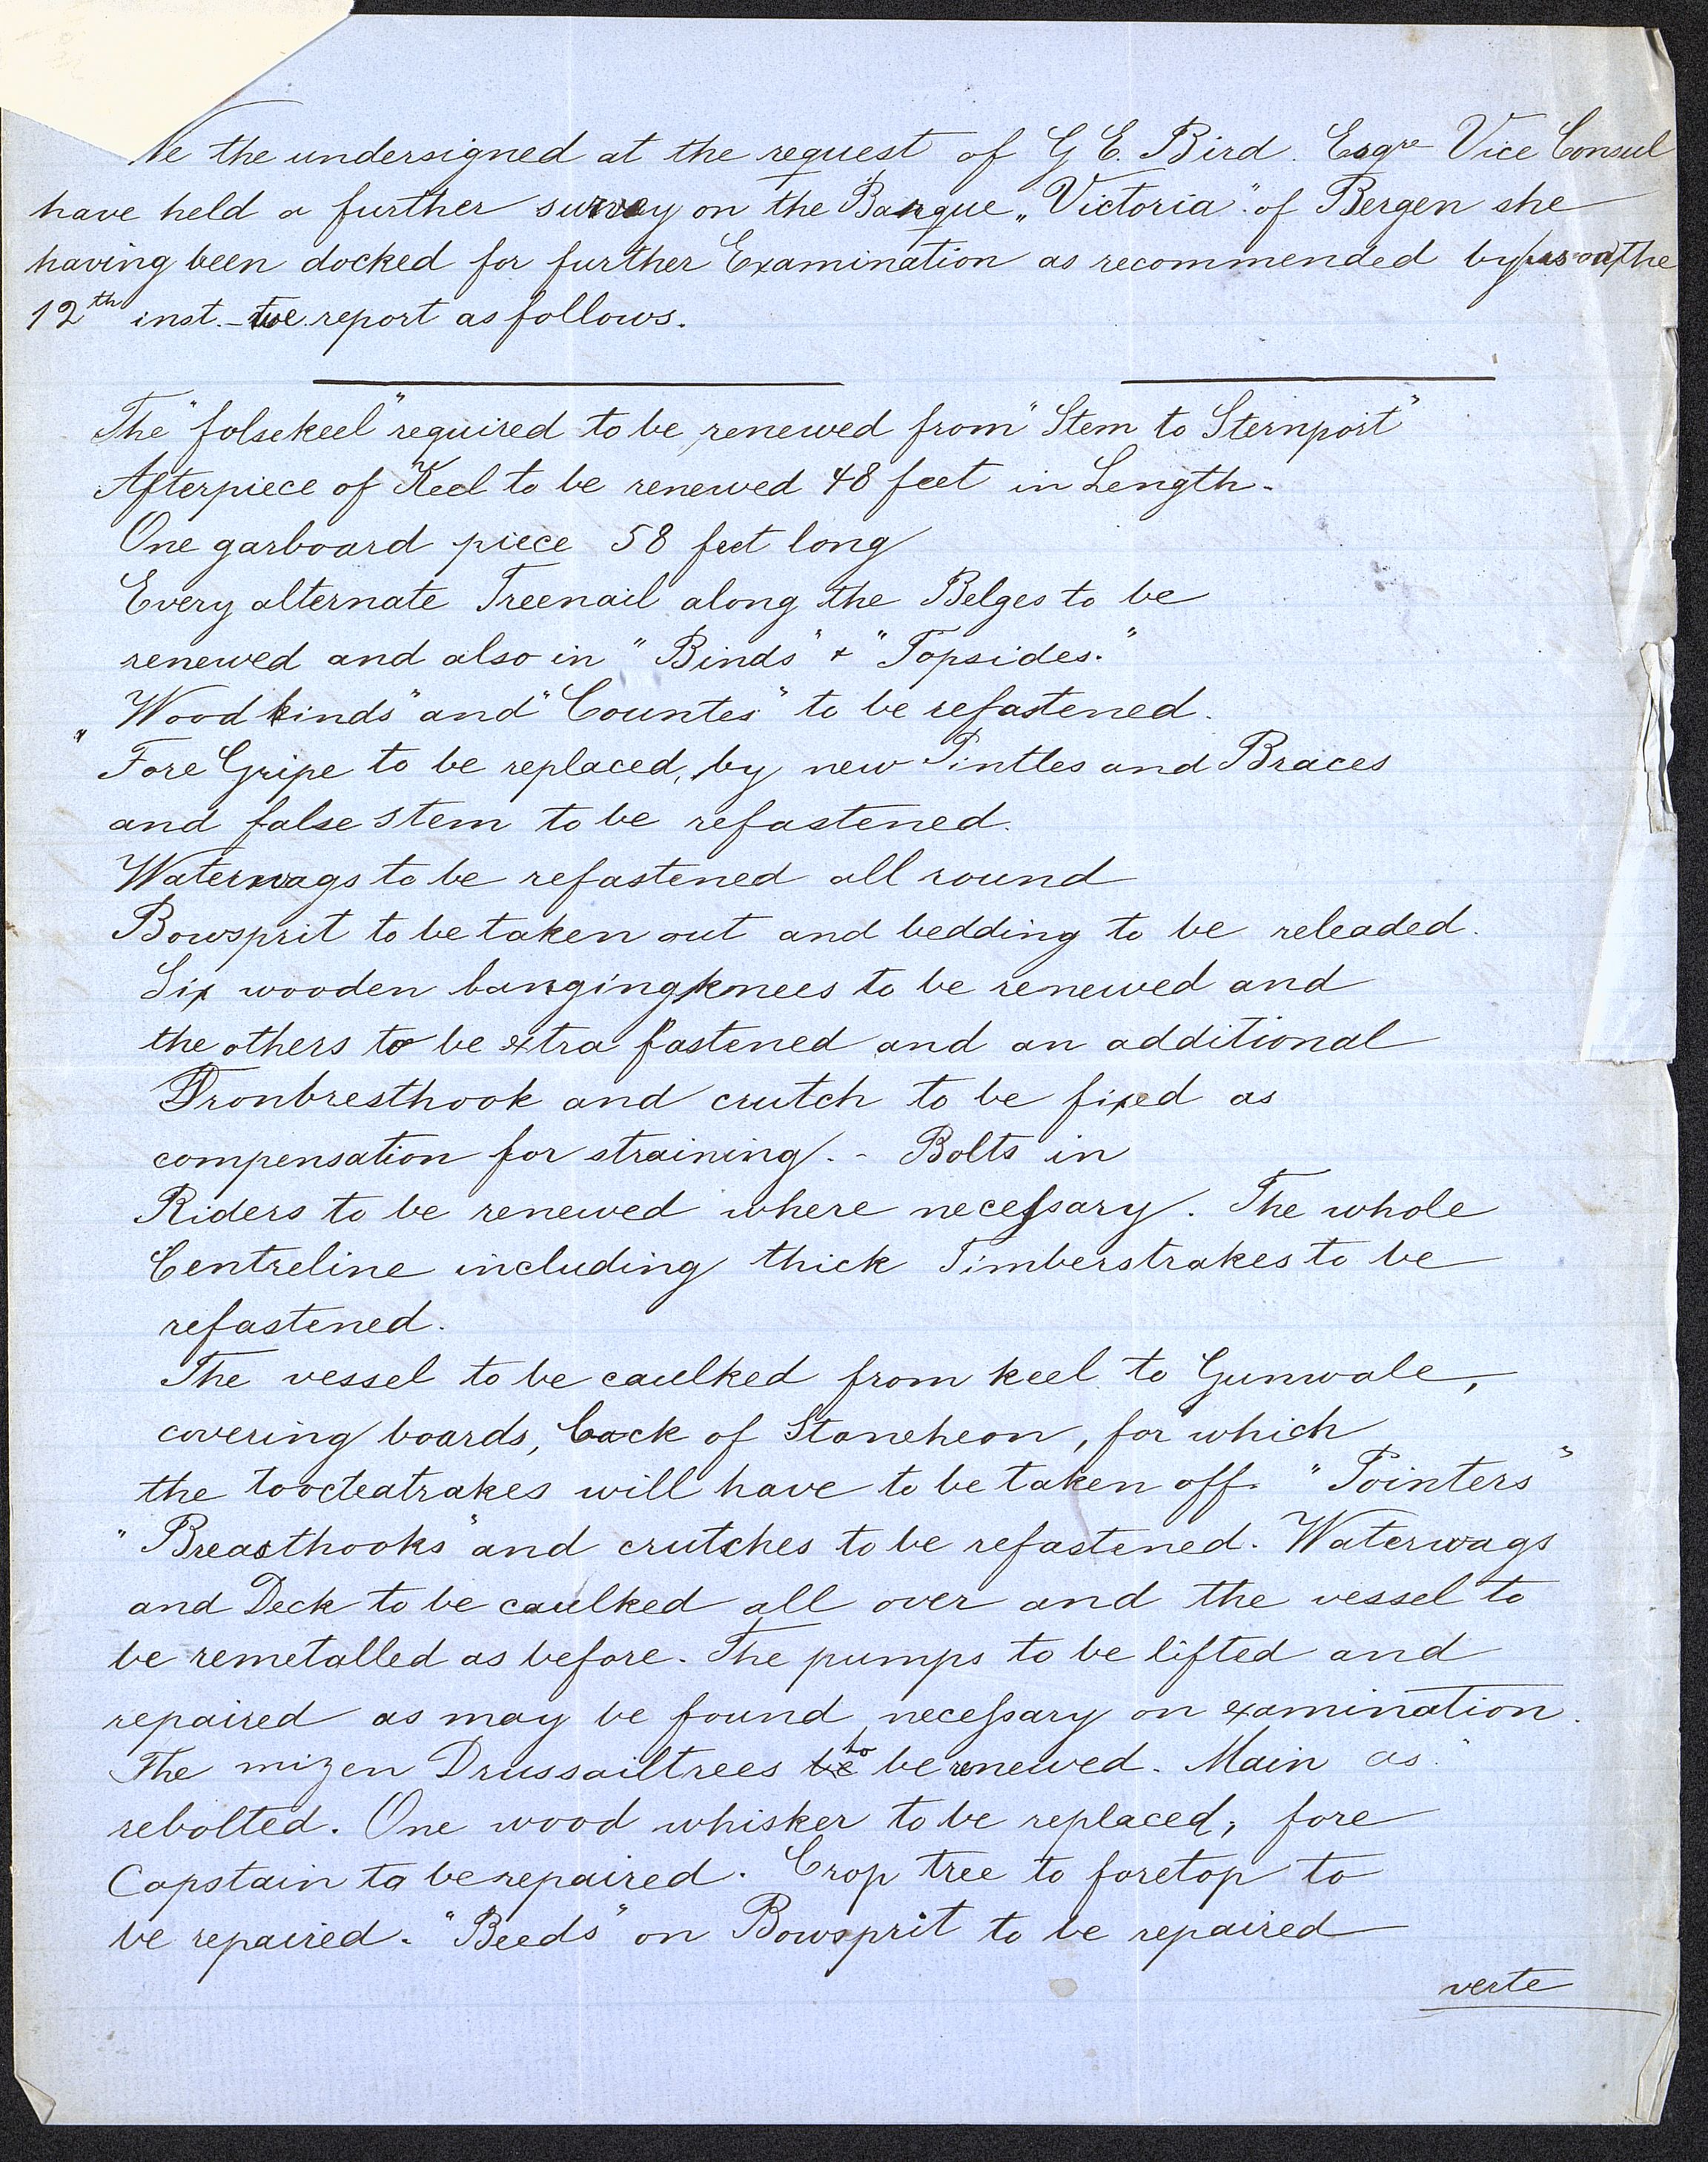 We the undersigned at the request of G E. Bird. Esqre Vice Consul
have held a further survey on the Barque „Victoria" of Bergen she
having been docked for further Examination as recommended by us on the
12th inst. - we report as follows.
The "folsekeel" required to be renewed from "Stem to Sternport"
Afterpiece of Keel to be renewed 48 feet in Length.
One garboard piece 58 feet long
Every alternate Treenail along the Belges to be
renewed and also in "Binds" & "Topsides."
"Wood kinds" and "Countes" to be refastened.
Fore Gripe to be replaced, by new Pintles and Braces
and false stem to be refastened.
Waterwags to be refastened all round
Bowsprit to be taken out and bedding to be releaded.
Six wooden hanging knees to be renewed and
the others to be extra fastened and an additional
Ironbresthook and crutch to be fixed as
compensation for straining. - Bolts in
Riders to be renewed where necessary. The whole
Centreline including thick Timberstrakes to be
refastened.
The vessel to be caulked from keel to Gunwale,
covering boards, back of Stoneheon, for which
the will have to be taken off. "Pointers"
"Breasthooks" and crutches to be refastened. Waterwags
and Deck to be caulked all over and the vessel to
be remetalled as before. The pumps to be lifted and
repaired as may be found necessary on examination.
The mizen Drussailtrees be to be renewed. Main as
rebolted. One wood whisker to be replaced, fore
Capstain to be repaired. Crop tree to foretop to
be repaired. "Beeds" on Bowsprit to be repaired
verte